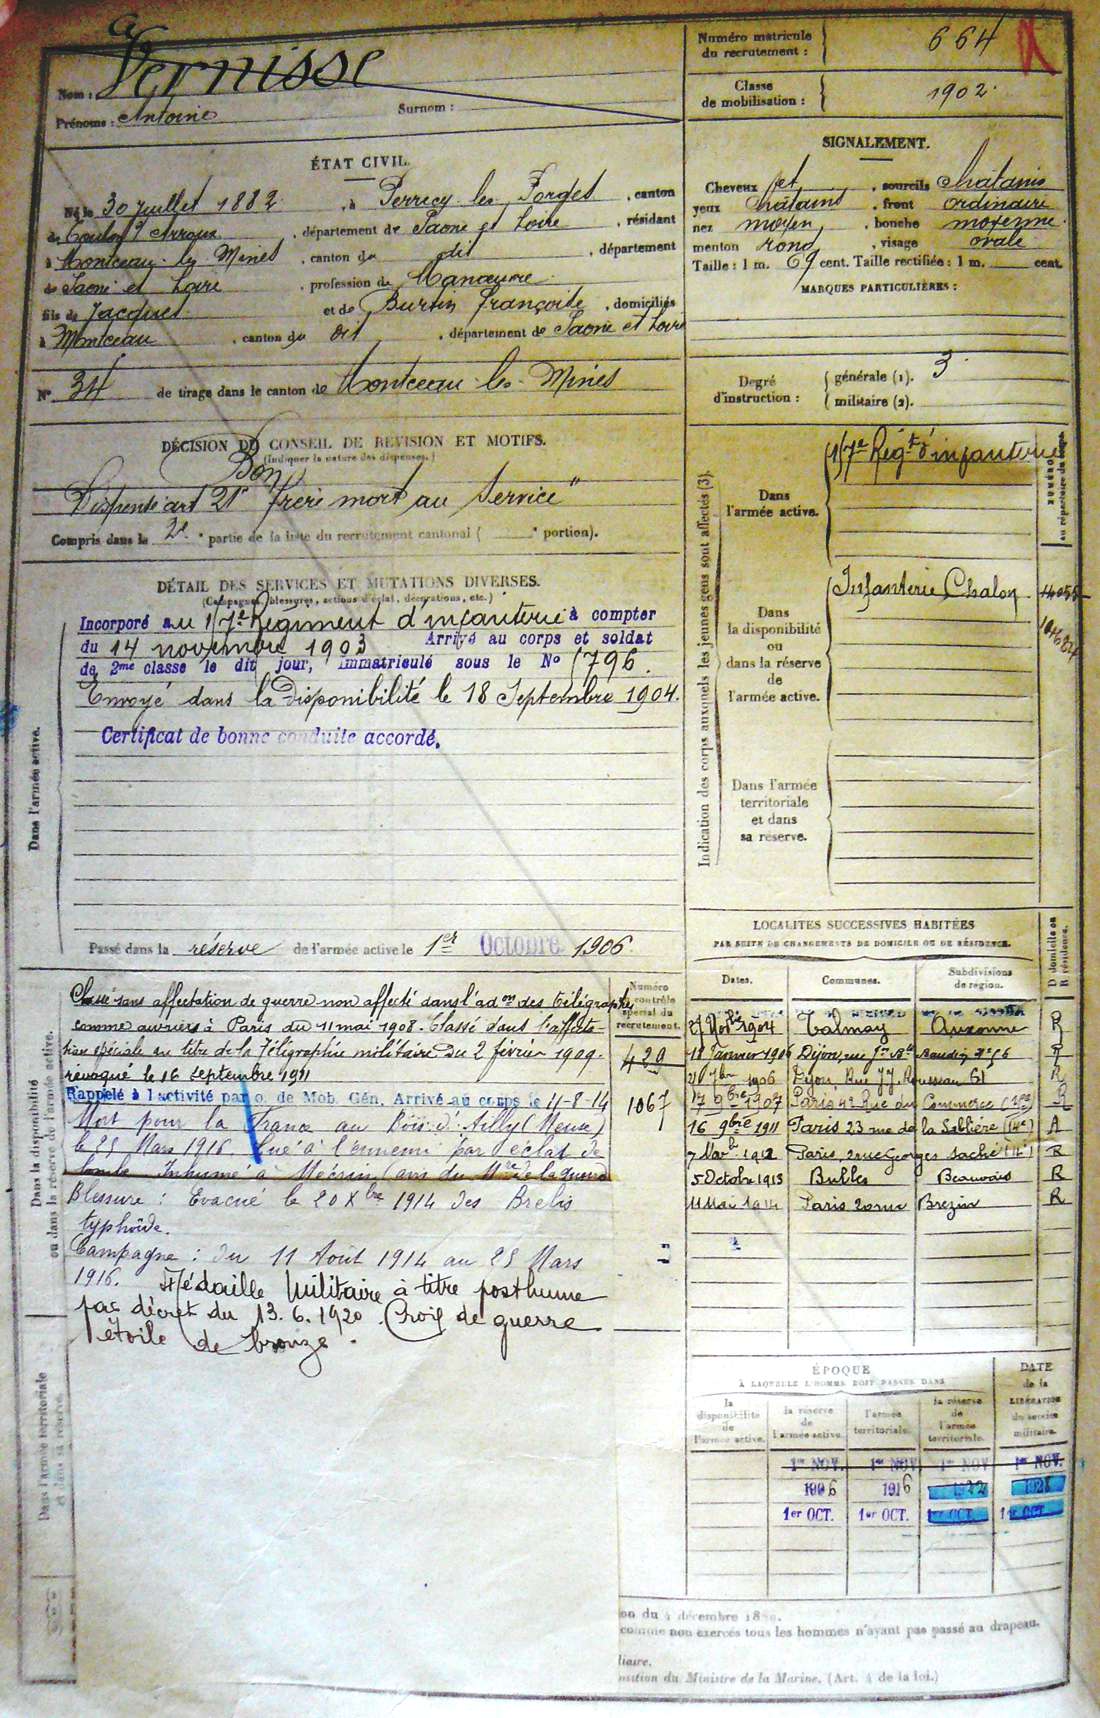 Vernisse
Nom :
Prénoms : Antoine
Surnom :
Numéro matricule
du recrutement : 664
Classe
de mobilisation : 1902.
ÉTAT CIVIL.
Né le 30 juillet 1882, à Perrecy les Forges, canton
de Toulon s/ Arroux, département de Saone et Loire, résidant
à Montceau les Mines, canton du dit, département
de Saone et Loire, profession de Manœuvre
fils de Jacques et de Burtin Françoise, domiciliés
à Montceau, canton du dit, département de Saone et Loire
N° 34 de tirage dans le canton de Montceau-les-Mines
SIGNALEMENT.
Cheveux et, sourcils chatains
yeux chatains, front ordinaire
nez moyen, bouche moyenne
menton rond, visage ovale
Taille : 1 m. 69 cent. Taille rectifiée : 1 m. cent.
MARQUES PARTICULIÈRES :
Degré
d'instruction :
générale (1). 3
militaire (2).
DÉCISION DU CONSEIL DE REVISION ET MOTIFS.
(Indiquer la nature des dispenses.)
Bon
Dispensé art 21 "frère mort au Service"
Compris dans la 2e partie de la liste du recrutement cantonal ( portion).
DÉTAIL DES SERVICES ET MUTATIONS DIVERSES.
(Campagnes, blessures, actions d'éclat, décorations, etc.)
Dans l'armée active.
Incorporé au Régiment d'infanterie à compter
du 14 novembre 1903 Arrivé au corps et soldat
de 2me classe le dit jour, immatriculé sous le No
Envoyé dans la Disponibilité le 18 Septembre 1904.
Certificat de bonne conduite accordé.
Passé dans la réserve de l'armée active le 1er Octobre 1906.
Indication des corps auxquels les jeunes gens sont affectés (3).
NUMÉRO
au répertoire du corps.
Dans
l'armée active.
Regt d'infanterie
Dans
la disponibilité
ou
dans la réserve
de
l'armée active.
Infanterie Chalon
Dans l'armée
territoriale
et dans
sa réserve.
Dans la disponibilité
ou dans la réserve de l'armée active.
Classé sans affectation de guerre non affecté dans l'adon des télégraphes
comme ouvrier à Paris du 11 mai 1908. Classé dans l'affecta-
tion spéciale au titre de la Télégraphie militaire du 2 février 1909.
révoqué le 16 septembre 1911
Rappelé à l'activité par o. de Mob. Gén. Arrivé au corps le 11-8-14
Mort pour la France au Bois d'Ailly (Meuse)
le 25 Mars 1916. Tué à l'ennemi par éclat de
bombe. Inhumé à Mécrin
Blessure : Evacué le 20 Xbre 1914 des
typhoïde.
Campagne : du 11 Août 1914 au 25 Mars
1916. Médaille Militaire à titre posthume
par décret du 13.6.1920 Croix de guerre
étoile de bronze.
Numéro
au contrôle
spécial du
recrutement.
429
1067
Dans l'armée territoriale
et dans sa réserve.
LOCALITÉS SUCCESSIVES HABITÉES
PAR SUITE DE CHANGEMENTS DE DOMICILE OU DE RÉSIDENCE.
Dates.
Communes.
Subdivisions
de région.
D domicile ou
R résidence.
1904 Talmay Auxonne R
Janvier 1906 Dijon, rue Jn Bte Baudin
1906 Dijon, Rue JJ Rousseau 61 R
9bre 1907 Paris 42 Rue du Commerce R
16 9bre 1911 Paris 23 rue de la Sablière (14e)
7 Nov 1912 Paris, 2 rue Georges Saché (14e) R
5 Octobre 1913 Bulles Beauvais R
11 Mai 1914 Paris 20 rue Brezin R
ÉPOQUE
À LAQUELLE L'HOMME DOIT PASSER DANS
DATE
de la
LIBÉRATION
du service
militaire.
la
disponibilité
de
l'armée active.
la réserve
de
l'armée active.
l'armée
territoriale.
la réserve
de
l'armée
territoriale.
1er NOV. 1er NOV. 1er NOV. 1er NOV.
1906 1916 1922 1928
1er OCT. 1er OCT. 1er OCT. 1er OCT.
on du 4 décembre
comme non exercés tous les hommes n'ayant pas passé au drapeau.
liaire.
nsition du Ministre de la Marine. (Art. 4 de la loi.)